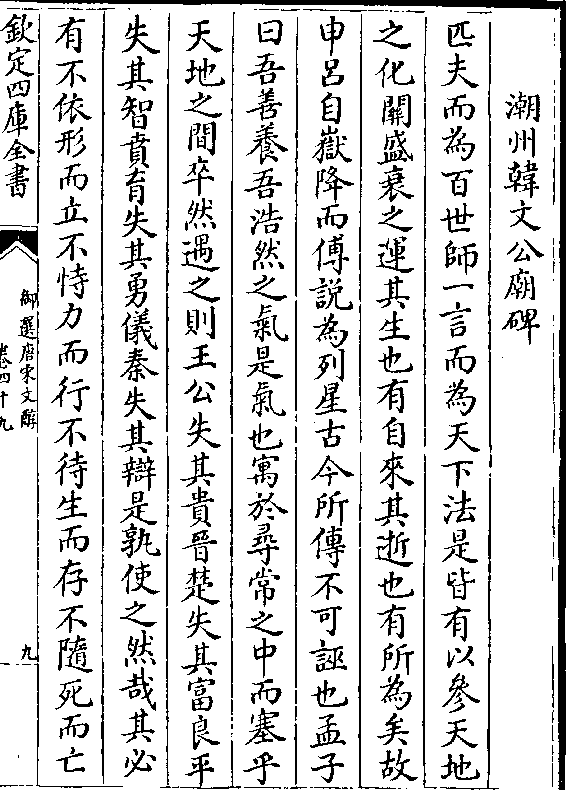 潮州韓文公廟碑
匹夫而為百世師一言而為天下法是皆有以參天地
之化關盛衰之運其生也有自來其逝也有所為矣故
申呂自嶽降而傅說為列星古今所傳不可誣也孟子
曰吾善養吾浩然之氣是氣也寓於尋常之中而塞乎
天地之間卒然遇之則王公失其貴晉楚失其富良平
失其智賁育失其勇儀秦失其辯是孰使之然哉其必
有不依形而立不恃力而行不待生而存不隨死而亡
欽定四庫全書
御選唐宋文醇
卷四十九
九